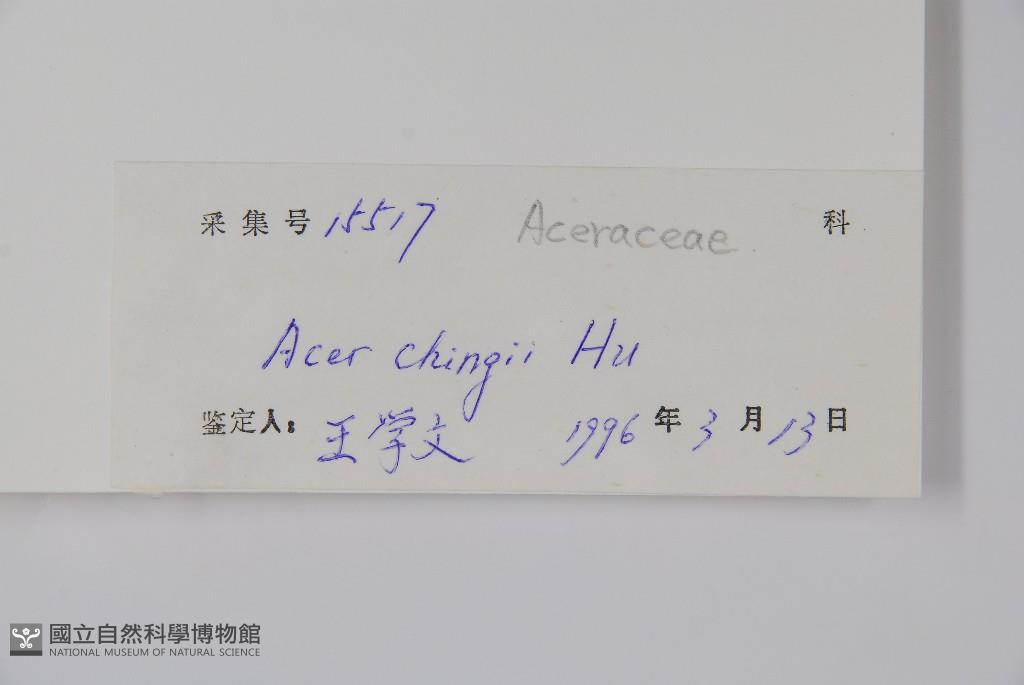 采集号 15517 Aceraceae 科
Acer chingii Hu
鉴定人: 王学文 1996 年 3 月 13 日
國立自然科學博物館
NATIONAL MUSEUM OF NATURAL SCIENCE